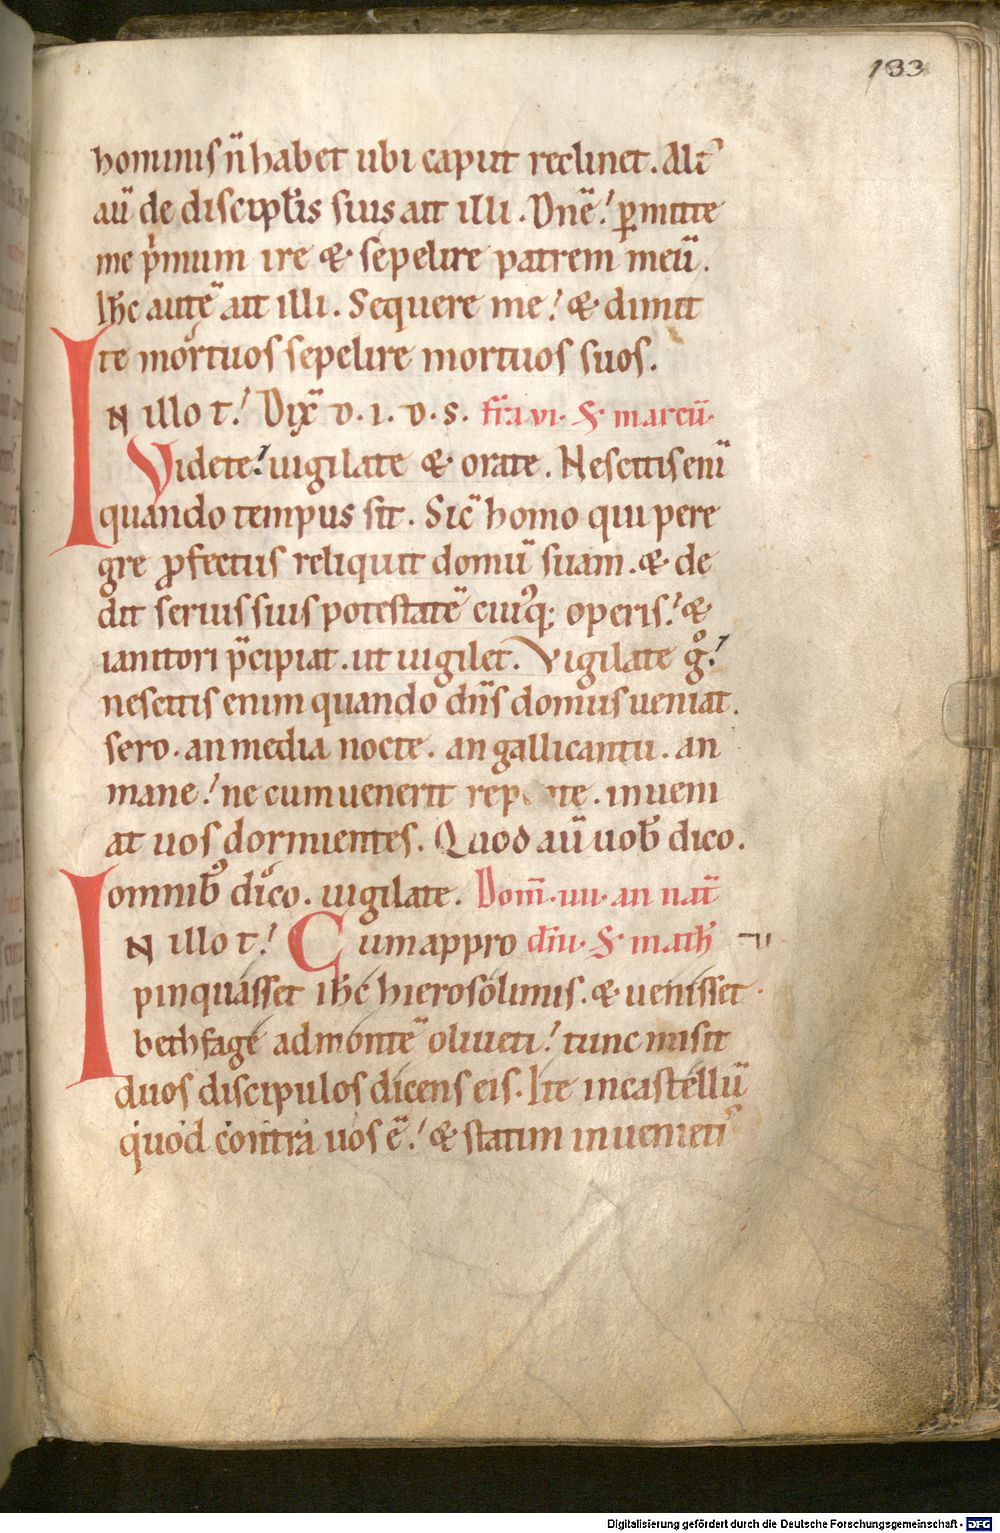 133
hominis n̄ habet ubi caput reclinet. Alt᷒
aū de discipl̄is suis ait illi. Dn̄e! ꝑmitte
me p̍mum ire & sepelire patrem meū.
Ih̄c autē ait illi. Sequere me! & dimit
te mortuos sepelire mortuos suos.
IN illo t̄! Dix̄ D. I. D. S. fr̄a vi. S̄ marcū.
Videte! uigilate & orate. Nescitis eni̅
quando tempus sit. Sic̄ homo qui pere
gre ꝓfectus reliquit domū suam. & de
dit seruis suis potestatē cuiꝯq; operis! &
ianitori p̄cipiat. ut uigilet. Vigilate gͦ!
nescitis enim quando dn̄s domus ueniat.
sero. an media nocte. an galli cantu. an
mane! ne cum uenerit rep te. inueni
at uos dormientes. Quod aū uob̄ dico.
omnib᷒ dico. uigilate. Dom̄. iiii. an nat̄
IN illo t̄! Cum appro dn̄i. S̄ math̄
pinquasset ih̄c hierosolimis. & uenisset
bethfage ad montē oliueti! tunc misit
duos discipulos dicens eis. Ite in castellū
quod contra uos ē! & statim inuenieti᷒
Digitalisierung gefördert durch die Deutsche Forschungsgemeinschaft - DFG